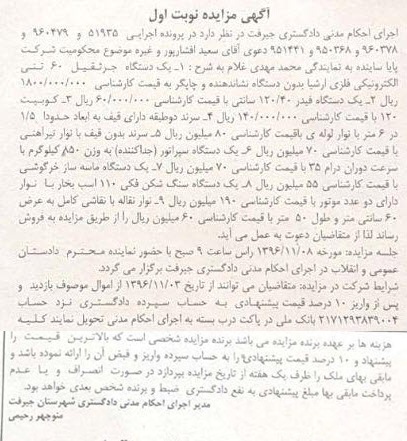 آگهی مزایده نوبت اول
اجرای احکام مدنی دادگستری جیرفت در نظر دارد در پرونده اجرایی ۵۱۹۳۵ و ۹۶۰۴۷۹ و
۹۶۰۳۷۸ و ۹۵۰۳۶۸ و ۹۵۱۴۴۱ دعوی آقای سعید افشارپور و غیره موضوع محکومیت شرکت
پایا ساینده به نمایندگی محمد مهدی غلام به شرح : ۱ـ یک دستگاه جرثقیل ۶۰ تنی
الکترونیکی فلزی ارشیا بدون دستگاه نشاندهنده و چاپگر به قیمت کارشناسی ۱/۸۰۰/۰۰۰/۰۰۰
ریال ۲ـ یک دستگاه فیدر ۱۲۰/۴۰ سانتی با قیمت کارشناسی ۶۰/۰۰۰/۰۰۰ ریال ۳ـ کوبیت
۱۲۰ با قیمت کارشناسی ۱۴۰/۰۰۰/۰۰۰ ریال ۴ـ سرند دوطبقه دارای قیف به ابعاد حدودا ۱/۵
در ۶ متر با نوار لوله ی باقیمت کارشناسی ۸۰ میلیون ریال ۵ـ سرند بدون قیف با نوار تیراهنی
با قیمت کارشناسی ۷۰ میلیون ریال ۶ـ یک دستگاه سپراتور (جداکننده) به وزن ۸۵۰ کیلوگرم با
سرعت دوران درام ۳۵ با قیمت کارشناسی ۷۰ میلیون ریال ۷ـ یک دستگاه ماسه ساز خرگوشی
با قیمت کارشناسی ۵۵ میلیون ریال ۸ـ یک دستگاه سنگ شکن فکی ۱۱۰ اسب بخار با نوار
دارای دو عدد موتور با قیمت کارشناسی ۱۹۰ میلیون ریال ۹ـ نوار نقاله با نقاشی کامل به عرض
۶۰ سانتی متر و طول ۵۰ متر با قیمت کارشناسی ۶۰ میلیون ریال را از طریق مزایده به فروش
رساند لذا از متقاضیان دعوت به عمل می آید.
جلسه مزایده: مورخه ۱۳۹۶/۱۱/۰۸ راس ساعت ۹ صبح با حضور نماینده محترم دادستان
عمومی و انقلاب در اجرای احکام مدنی دادگستری جیرفت برگزار می گردد.
شرایط شرکت در مزایده: متقاضیان می توانند از تاریخ ۱۳۹۶/۱۱/۰۳ از اموال موصوف بازدید و
پس از واریز ۱۰ درصد قیمت پیشنهادی به حساب سپرده دادگستری نزد حساب
۲۱۷۱۲۹۳۸۳۹۰۰۴ بانک ملی در پاکت درب بسته به اجرای احکام مدنی تحویل نمایند کلیه
هزینه ها بر عهده برنده مزایده می باشد برنده مزایده شخصی است که بالاترین قیمت را
پیشنهاد و ۱۰ درصد قیمت پیشنهادی را به حساب سپرده واریز و قبض آن را ارائه نموده باشد و
مابقی بهای ملک را ظرف یک هفته از تاریخ مزایده بپردازد در صورت انصراف و یا عدم
پرداخت مابقی بها مبلغ پیشنهادی به نفع دادگستری ضبط و برنده شخص بعدی خواهد بود.
مدیر اجرای احکام مدنی دادگستری شهرستان جیرفت
منوچهر رحیمی